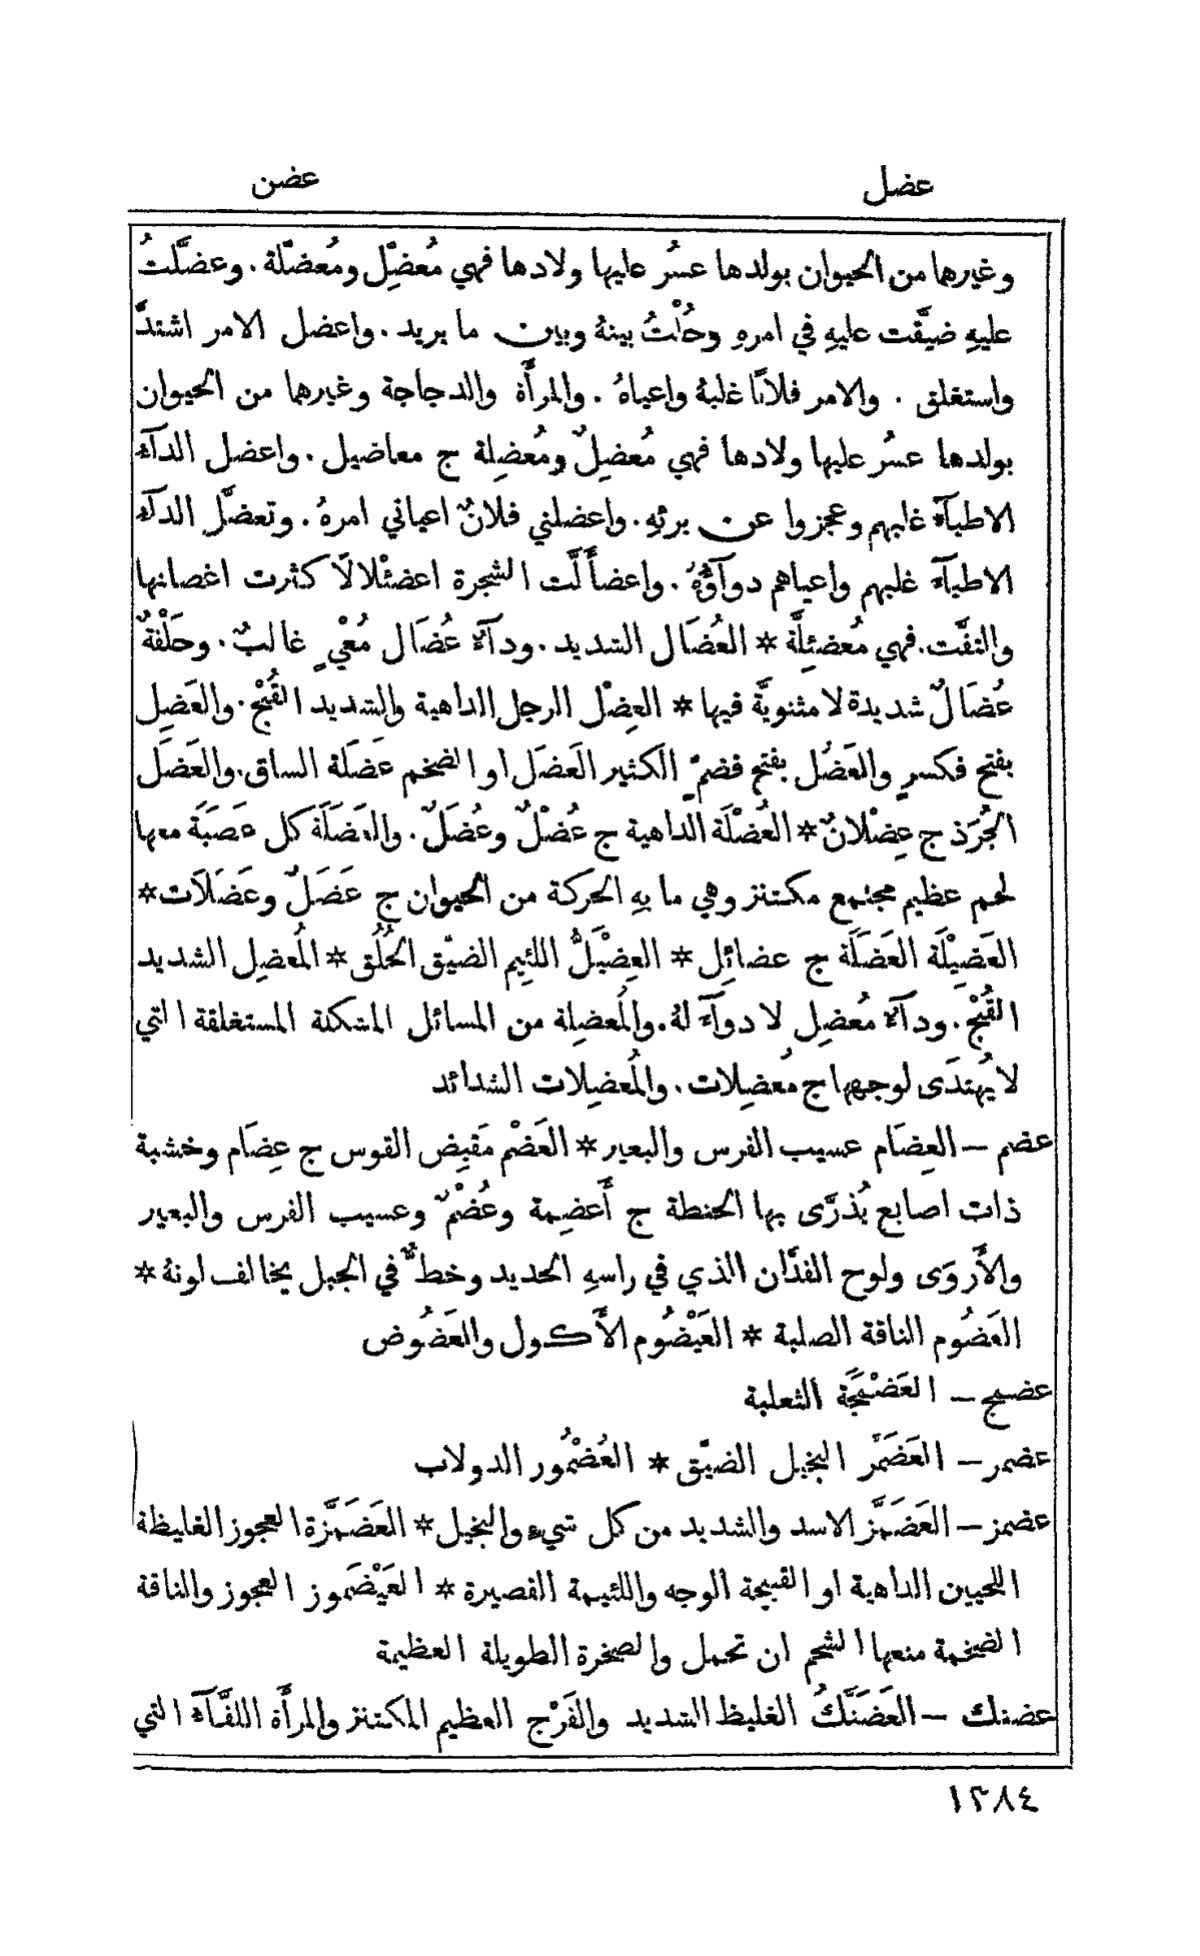 عضل
عضن
وغيرها من الحيوان بولدها عسُر عليها ولادها فهي مُعضِّل ومُعضِّلة. وعضَّلتُ
عليهِ ضيَّقت عليهِ في امرهِ وحُلْتُ بينهُ وبين ما يريد. واعضل الامر اشتدَّ
واستغلق. والامر فلانًا غلبهُ واعياهُ. والمرأَة والدجاجة وغيرها من الحيوان
بولدها عسُر عليها ولادها فهي مُعضِلٌ ومُعضِلة ج معاضيل. واعضل الدآءُ
الاطبآءَ غلبهم وعجزوا عن برئهِ. واعضلني فلانٌ اعياني امرهُ. وتعضَّل الدآءُ
الاطبآءَ غلبهم واعياهم دوآؤُهُ. واعضأَلَّت الشجرة اعضئْلالًا كثرت اغصانها
والتفَّت. فهي مُعضئِلَّة * العُضَال الشديد. ودآءٌ عُضَال مُعْيٍ غالبٌ. وحَلْفةٌ
عُضَالٌ شديدة لا مثنويَّة فيها * العِضْل الرجل الداهية والشديد القُبْح. والعَضِل
بفتح فكسرٍ والعَضُل بفتح فضمٍّ الكثير العَضَل او الضخم عَضَلة الساق. والعَضَل
الجُرَذ ج عِضْلانٌ * العُضْلَة الداهية ج عُضْلٌ وعُضَلٌ. والعَضَلَة كل عَصَبَة معها
لحم عظيم مجتمع مكتنز وهي ما بهِ الحركة من الحيوان ج عَضَلٌ وعَضَلَات *
العَضِيْلَة العَضَلَة ج عضائِل * العِضْيَلُّ اللئيم الضيّق الخُلُق * المُعضِل الشديد
القُبْح. ودآءٌ مُعضِل لا دوآءَ لهُ. والمُعضِلة من المسائل المشكلة المستغلقة التي
لا يُهتدَى لوجهها ج مُعضِلات. والمُعضِلات الشدائد
عضم — العِضَام عسيب الفرس والبعير * العَضْم مَقبِض القوس ج عِضَام وخشبة
ذات اصابع يُذرَّى بها الحنطة ج أَعضِمة وعُضْمٌ وعسيب الفرس والبعير
والأَروَى ولوح الفدَّان الذي في راسهِ الحديد وخطٌّ في الجبل يخالف لونهُ *
العَضُوم الناقة الصلبة * العَيْضُوم الأَكول والعَضُوض
عضمج — العَضْمَجَة الثعلبة
عضمر — العَضَمَّر البخيل الضيّق * العُضْمُور الدولاب
عضمز — العَضَمَّز الاسد والشديد من كل شيءٍ والبخيل * العَضَمَّزة العجوز الغليظة
اللحيين الداهية او القبيحة الوجه واللئيمة القصيرة * العَيْضَموز العجوز والناقة
الضخمة منعها الشحم ان تحمل والصخرة الطويلة العظيمة
عضنك — العَضَنَّكُ الغليظ الشديد والفَرْج العظيم المكتنز والمرأَة اللفَّآءُ التي
١٣٨٤